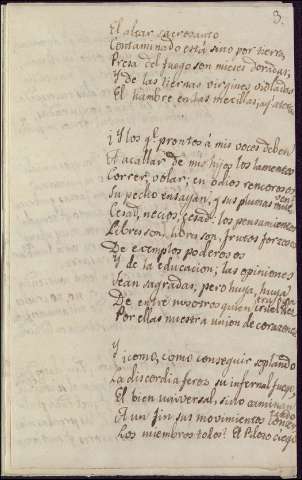 3.
El altar sacrosanto
Contaminado está, sino por tierra,
Presa del fuego son mieses doradas,
Y de las tiernas virgines violadas
El hambre en las mexillas,
¡Y los q.e prontos á mis voces deben
Al acallar de mis hijos los lamentos
Correr, volar; en odios rencorosos
Su pecho ensayan, y sus plumas
Cesad, necios, cesad: los pensamientos
Libres son, libres son, frutos forzosos
De exemplos poderosos
Y de la educacion; las opiniones
Sean sagradas, pero huya, huya
De entre nosotros quien
Por ellas nuestra union de corazones
Y ¡como, como conseguir soplando
La discordia feroz su infernal fuego,
El bien universal, si no caminan
A un fin sus movimientos
Los miembros todos? El Piloto ciego